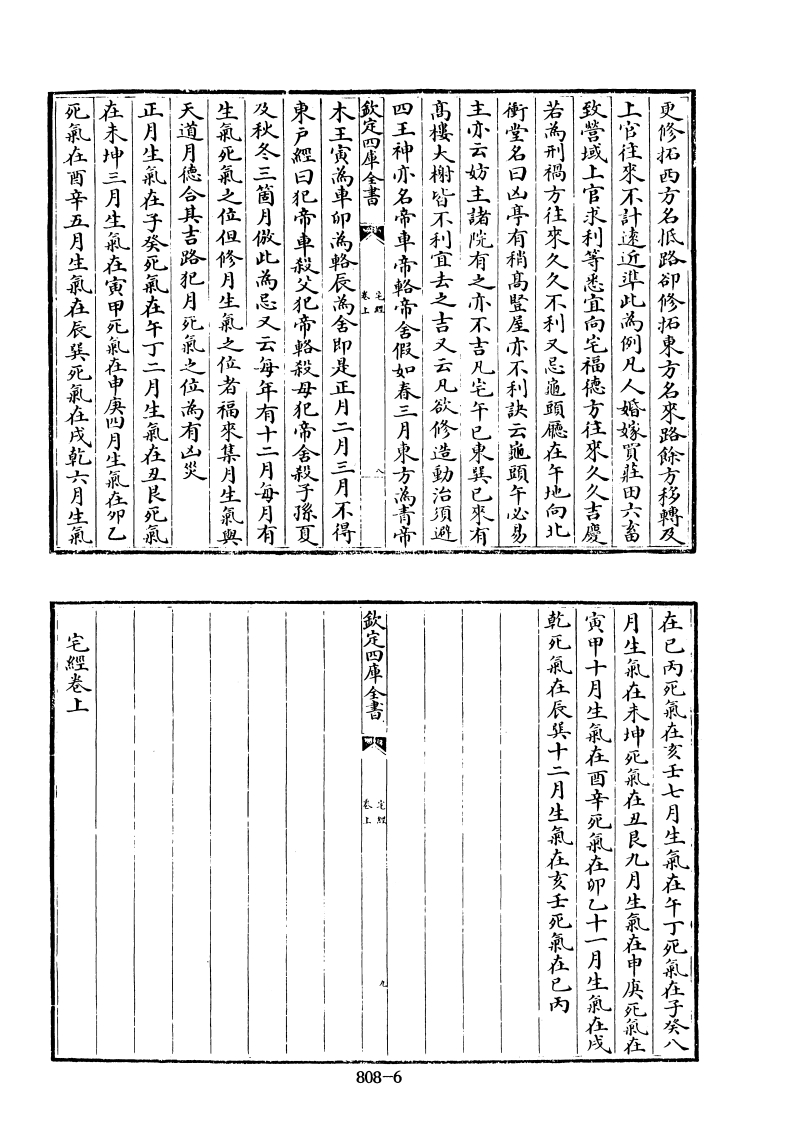 更修拓西方名抵路卻修拓東方名來路餘方移轉及
上官往來不計逺近準此為例凡人婚嫁買莊田六畜
致營域上官求利等悉宜向宅福徳方往來久久吉慶
若為刑禍方往來久久不利又忌龜頭廳在午地向北
衝堂名曰凶亭有稍髙豎屋亦不利訣云龜頭午必易
主亦云妨主諸院有之亦不吉凡宅午已東巽已來有
髙樓大榭皆不利宜去之吉又云凡欲修造動治須避
四王神亦名帝車帝輅帝舍假如春三月東方為青帝
欽定四庫全書
宅經
卷上
八
木王寅為車卯為輅辰為舍即是正月二月三月不得
東户經曰犯帝車殺父犯帝輅殺母犯帝舍殺子孫夏
及秋冬三箇月倣此為忌又云每年有十二月每月有
生氣死氣之位但修月生氣之位者福來集月生氣與
天道月徳合其吉路犯月死氣之位為有凶災
正月生氣在子癸死氣在午丁二月生氣在丑艮死氣
在未坤三月生氣在寅甲死氣在申庚四月生氣在卯乙
死氣在酉辛五月生氣在辰巽死氣在戌乾六月生氣
在已丙死氣在亥壬七月生氣在午丁死氣在子癸八
月生氣在未坤死氣在丑艮九月生氣在申庚死氣在
寅甲十月生氣在酉辛死氣在卯乙十一月生氣在戌
乾死氣在辰巽十二月生氣在亥壬死氣在已丙
欽定四庫全書
宅經
卷上
九
宅經卷上
808-6